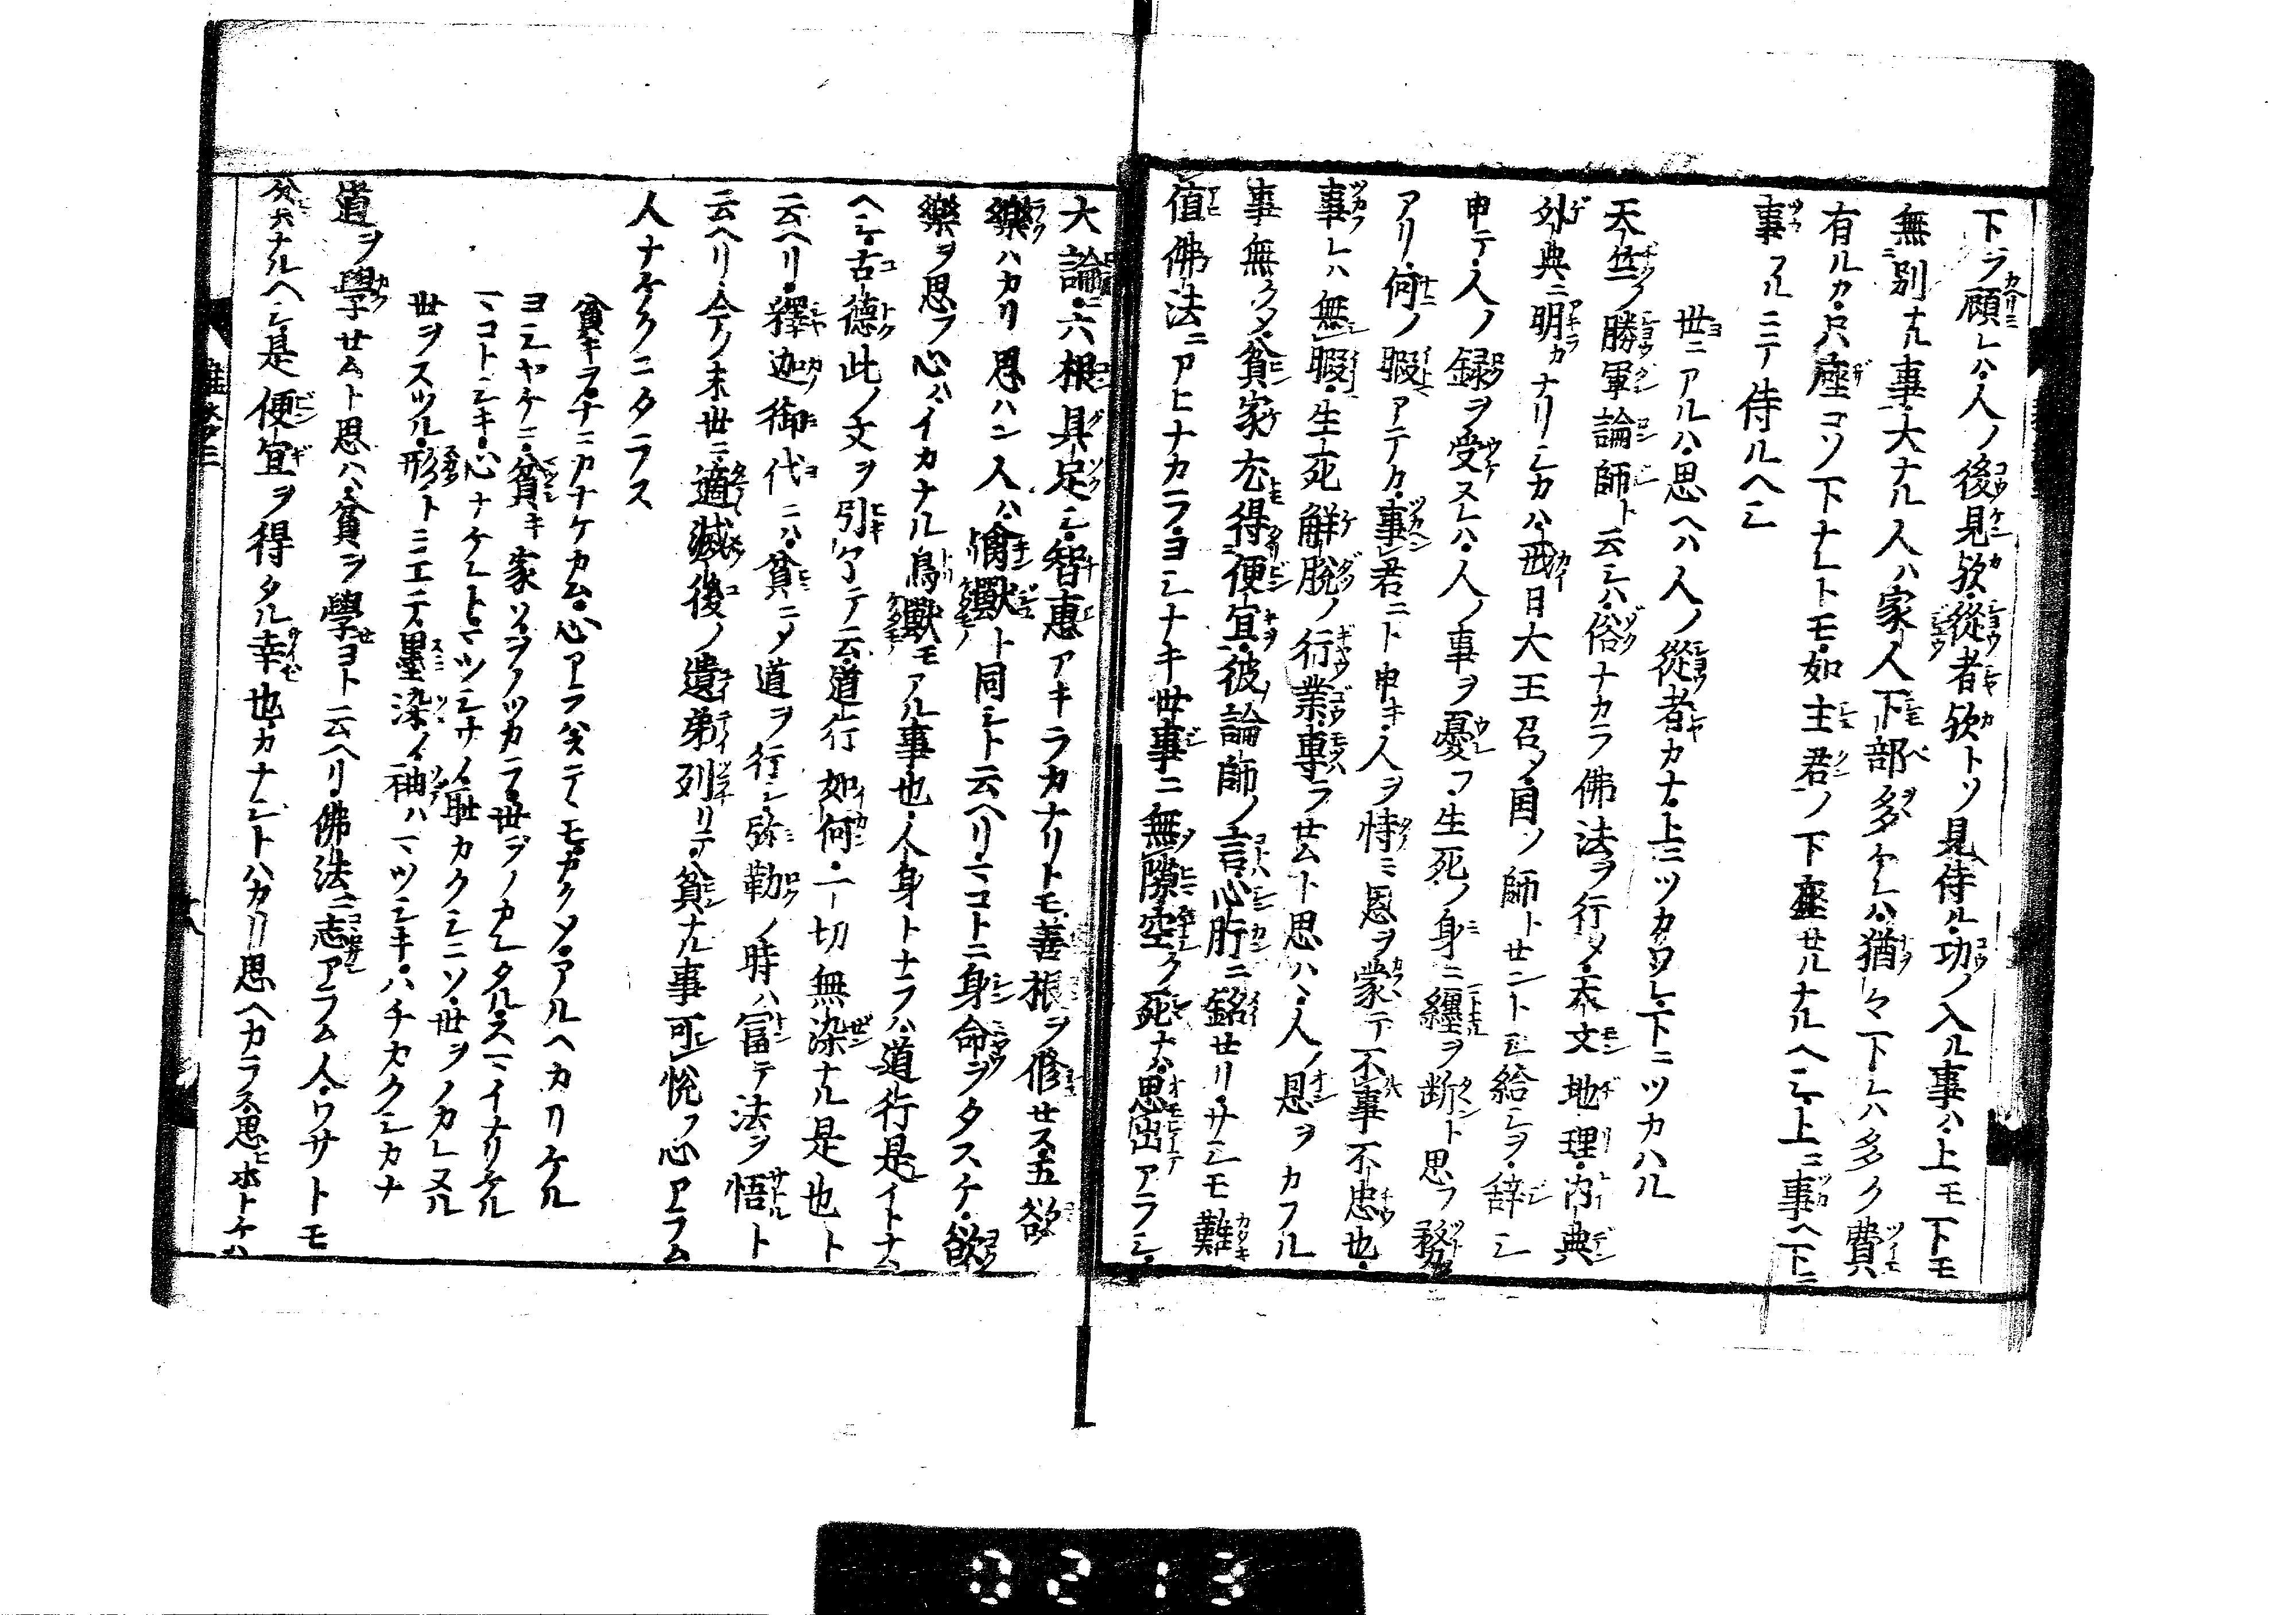 下ヲ顧レハ人ノ後見欤従者欤トソ見侍ル功ノ入ル事ハ上モ下モ
無別ナル事大ナル人ハ家人下部多ケレハ猶々下レハ多ク費
有ルカ只座コソ下ナレトモ如主君ノ下座セルナルヘシ上ニ事ヘ下ニ
事フルニニテ侍ルヘシ
世ニアルハ思ヘハ人ノ従者カナ上ニツカワレ下ニツカハル
天竺ノ勝軍論師ト云シハ俗ナカラ佛法ヲ行メ天文地理内典
外典ニ明カナリシカハ戒日大王召メ国ノ師トセントシ給シヲ辞シ
申テ人ノ録ヲ受ヌレハ人ノ事ヲ憂フ生死ノ身ニ纏ヲ断ト思フ務
アリ何ノ暇アテカ事君ニト申キ人ヲ恃ミ恩ヲ蒙テ不事不忠也
事レハ無暇生死解脱ノ行業専ラセムト思ハヽ人ノ恩ヲカフル
事無クメ貧家尤得便宜彼論師ノ言心肝ニ銘セリサシモ難
値佛法ニアヒナカラヨシナキ世事ニ無隙空ク死ナハ思出アラシ
大論ニ六根具足シ智恵アキラカナリトモ善根ヲ修セス五欲
樂ハカリ思ハン人ハ禽獣ト同シト云ヘリマコトニ身命ヲタスケ欲
樂ヲ思フ心ハイカナル鳥獣モアル事也人身トナラハ道行是イトナム
ヘシ古徳此ノ文ヲ引了テ云道行如何一切無染ナル是也ト
云ヘリ釋迦御代ニハ貧ニメ道ヲ行シ弥勒ノ時ハ富テ法ヲ悟ト
云ヘリ今ノ末世ニ適滅後ノ遺弟列リテ貧ナル事可悦フ心アラム
人ナケクニタラス
貧キヲナニカナケカム心アラハステヽモカクソアルヘカリケル
ヨシヤケニ貧キ家ソヲノツカラ世ヲノカレタルスマイナリケル
マコトシキ心ナケレトマツシサノ恥カクシニソ世ヲノカレヌル
世ヲスツル形トミエテ墨染ノ袖ハマツシキハチカクシカナ
道ヲ學セムト思ハヽ貧ヲ學ヨト云ヘリ佛法ニ志アラム人ワサトモ
貧ナルヘシ是便宜ヲ得タル幸也カナシトハカリ思ヘカラス思ホトケハ
雑談三
八
0213